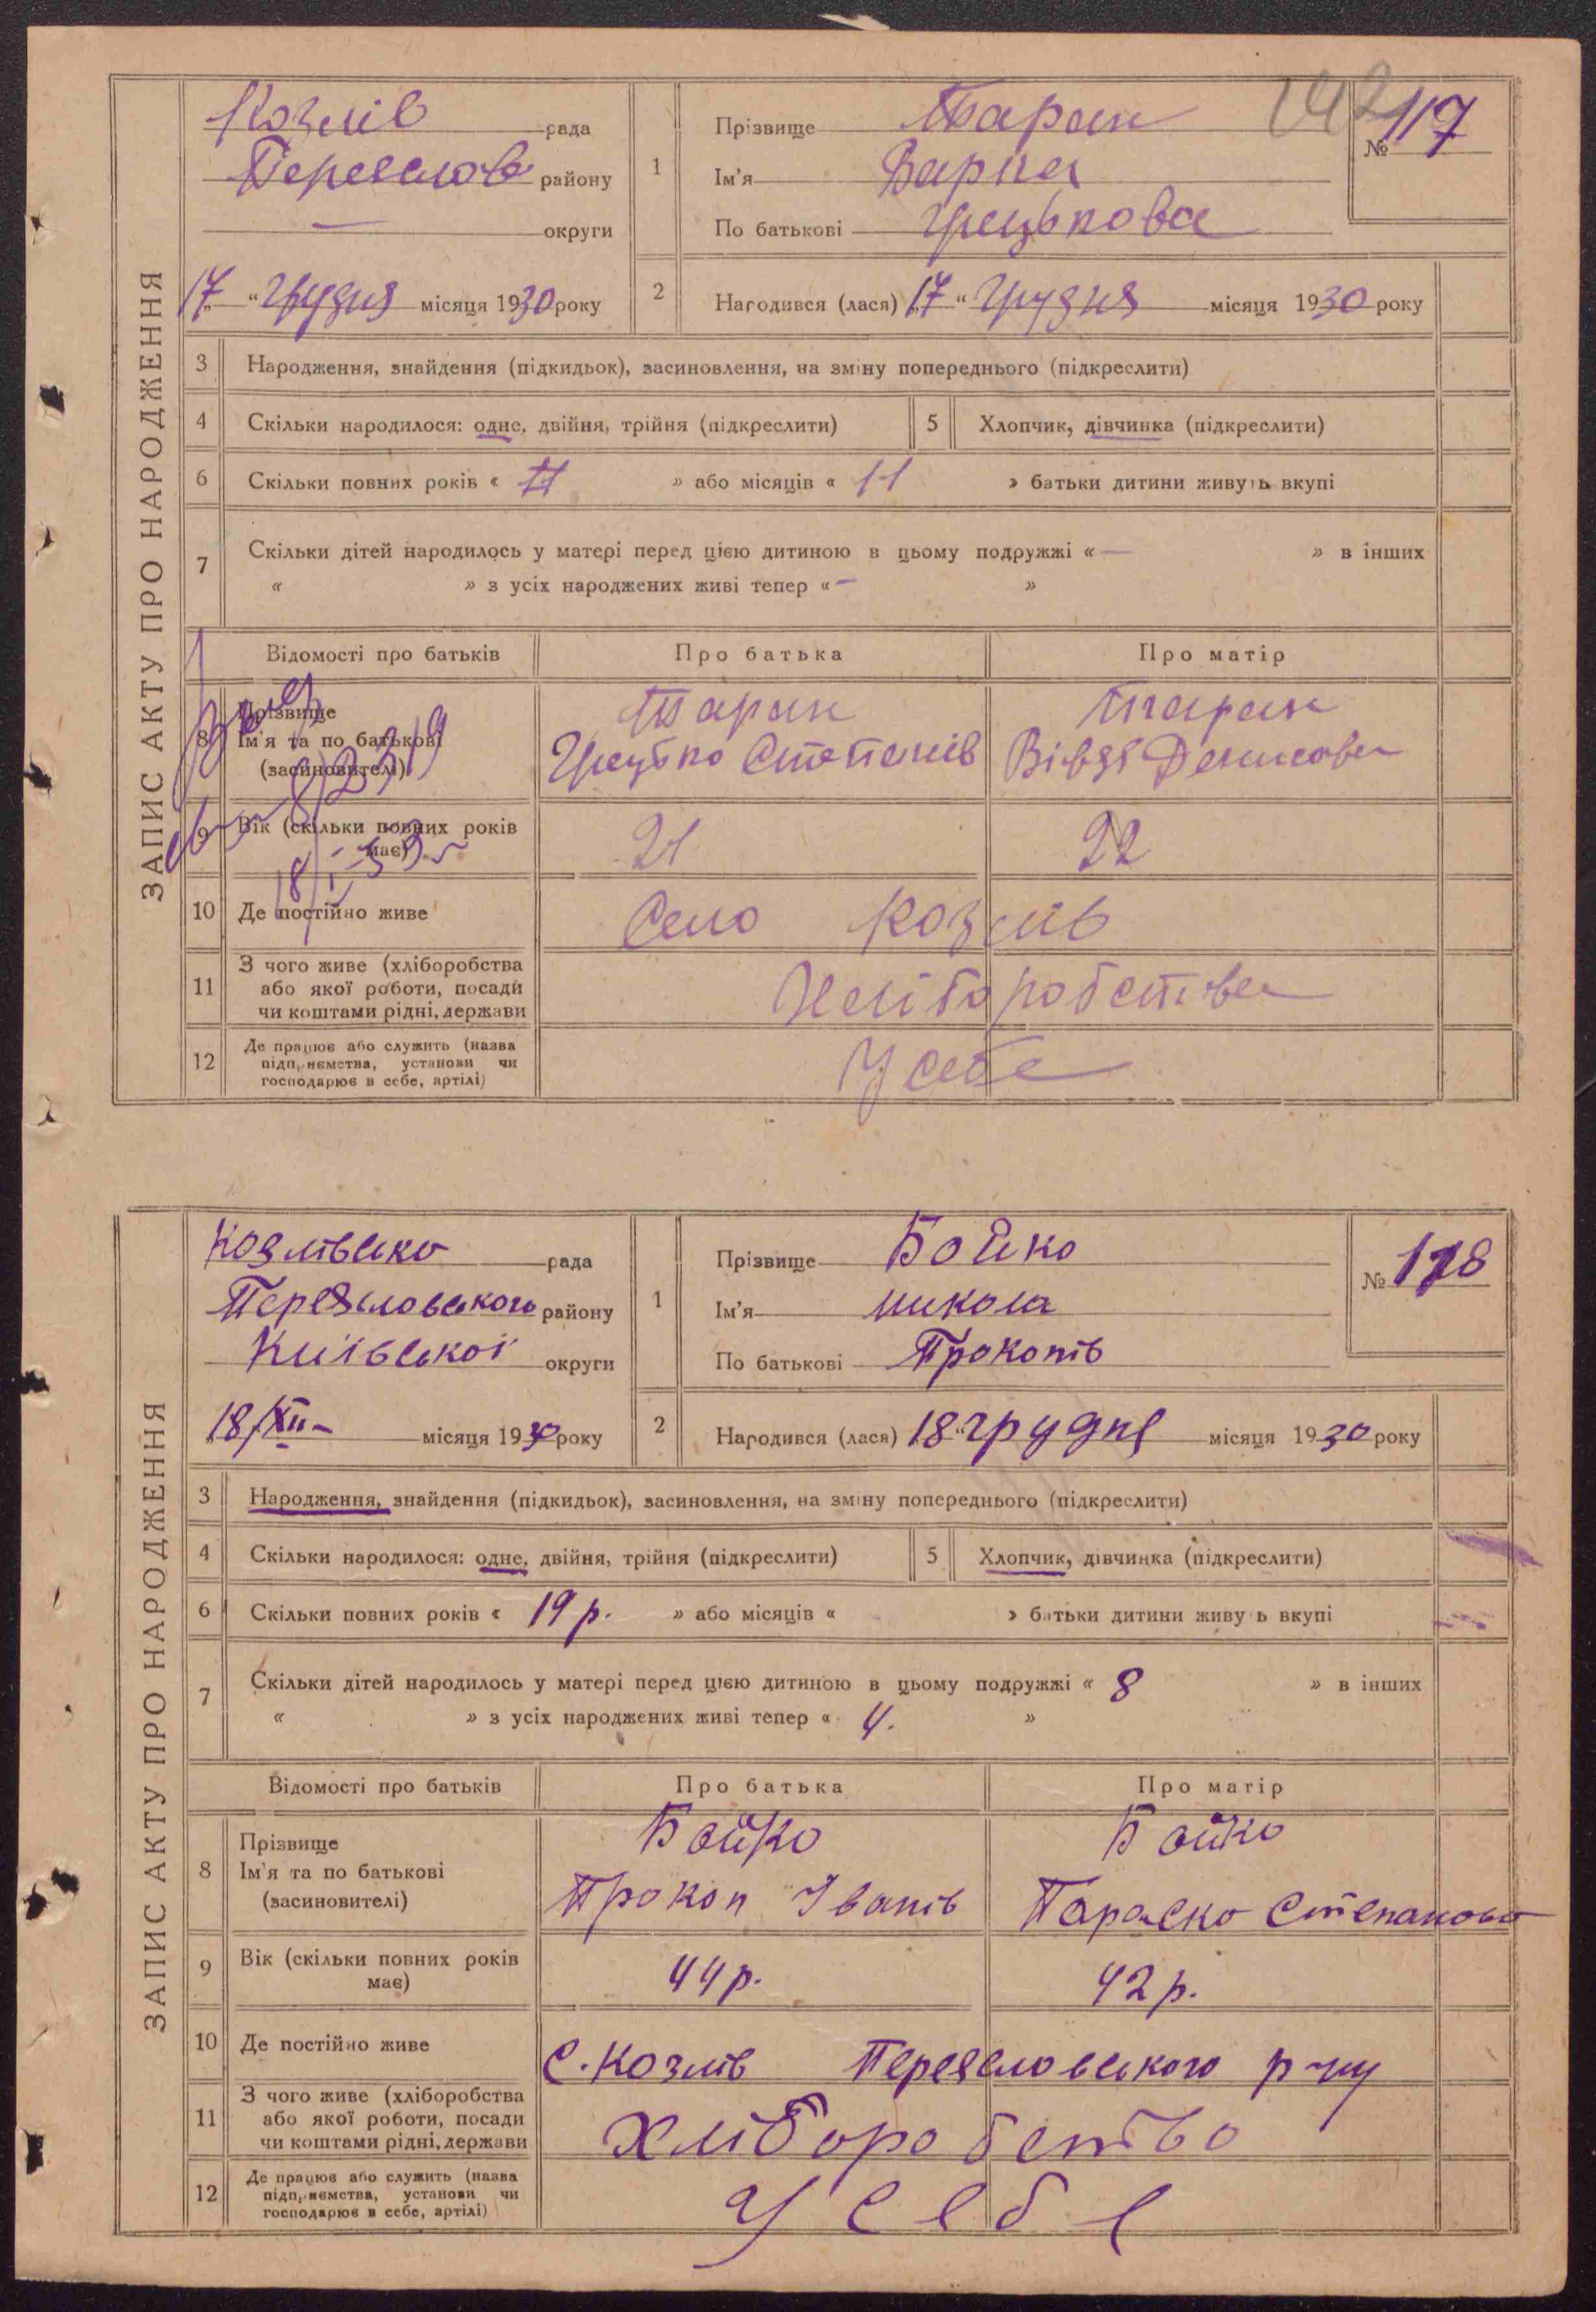 142
ЗАПИС АКТУ ПРО НАРОДЖЕННЯ
Козлів рада
Переяслов району
— округи
„17“ Грудня місяця 1930 року
1 Прізвище Таран
Ім'я Варка
По батькові Грецькова
№ 117
2 Народився (лася) „17“ Грудня місяця 1930 року
3 Народження, знайдення (підкидьок), засиновлення, на зміну попереднього (підкреслити)
4 Скільки народилося: одне, двійня, трійня (підкреслити)
5 Хлопчик, дівчинка (підкреслити)
6 Скільки повних років « » або місяців « 11 » батьки дитини живуть вкупі
7 Скільки дітей народилось у матері перед цією дитиною в цьому подружжі « — » в інших
« » з усіх народжених живі тепер « — »
Відомості про батьків Про батька Про матір
8 Прізвище
Ім'я та по батькові
(засиновителі)
Таран
Грецько Степанів
Таран
Вівдя Денисова
9 Вік (скільки повних років має) 21 22
10 Де постійно живе Село Козлів
11 З чого живе (хліборобства
або якої роботи, посади
чи коштами рідні, держави
Хліборобства
12 Де працює або служить (назва
підприємства, установи чи
господарює в себе, артілі)
У себе
ЗАПИС АКТУ ПРО НАРОДЖЕННЯ
Козлівсько рада
Переясловського району
Київської округи
„18/XII- місяця 1930 року
1 Прізвище Бойко
Ім'я Микола
По батькові Прокопів
№ 118
2 Народився (лася) 18 “ грудня місяця 1930 року
3 Народження, знайдення (підкидьок), засиновлення, на зміну попереднього (підкреслити)
4 Скільки народилося: одне, двійня, трійня (підкреслити)
5 Хлопчик, дівчинка (підкреслити)
6 Скільки повних років « 19 р. » або місяців « » батьки дитини живуть вкупі
7 Скільки дітей народилось у матері перед цією дитиною в цьому подружжі « 8 » в інших
« » з усіх народжених живі тепер « 4. »
Відомості про батьків Про батька Про матір
8 Прізвище
Ім'я та по батькові
(засиновителі)
Бойко
Прокоп Іванів
Бойко
Параско Степанова
9 Вік (скільки повних років має) 44 р. 42 р.
10 Де постійно живе С. Козлів Переясловського р-ну
11 З чого живе (хліборобства
або якої роботи, посади
чи коштами рідні, держави
Хліборобство
12 Де працює або служить (назва
підприємства, установи чи
господарює в себе, артілі)
У себе